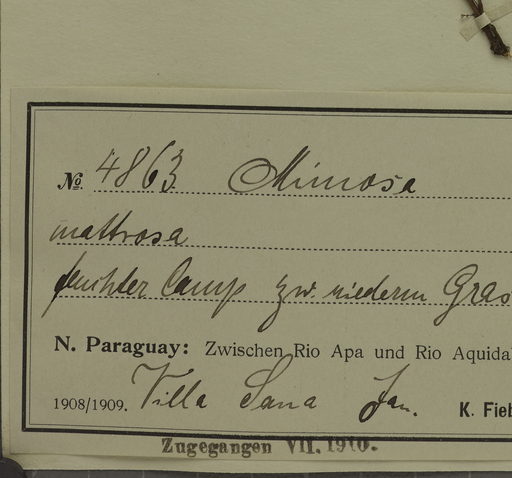 No. 4863. Mimosa
mattrosa
feuchter Camp zw. niederm Gras
N. Paraguay: Zwischen Rio Apa und Rio Aquida
1908/1909. Villa Sana Jan. K. Fieb
Zugegangen VII. 1910.